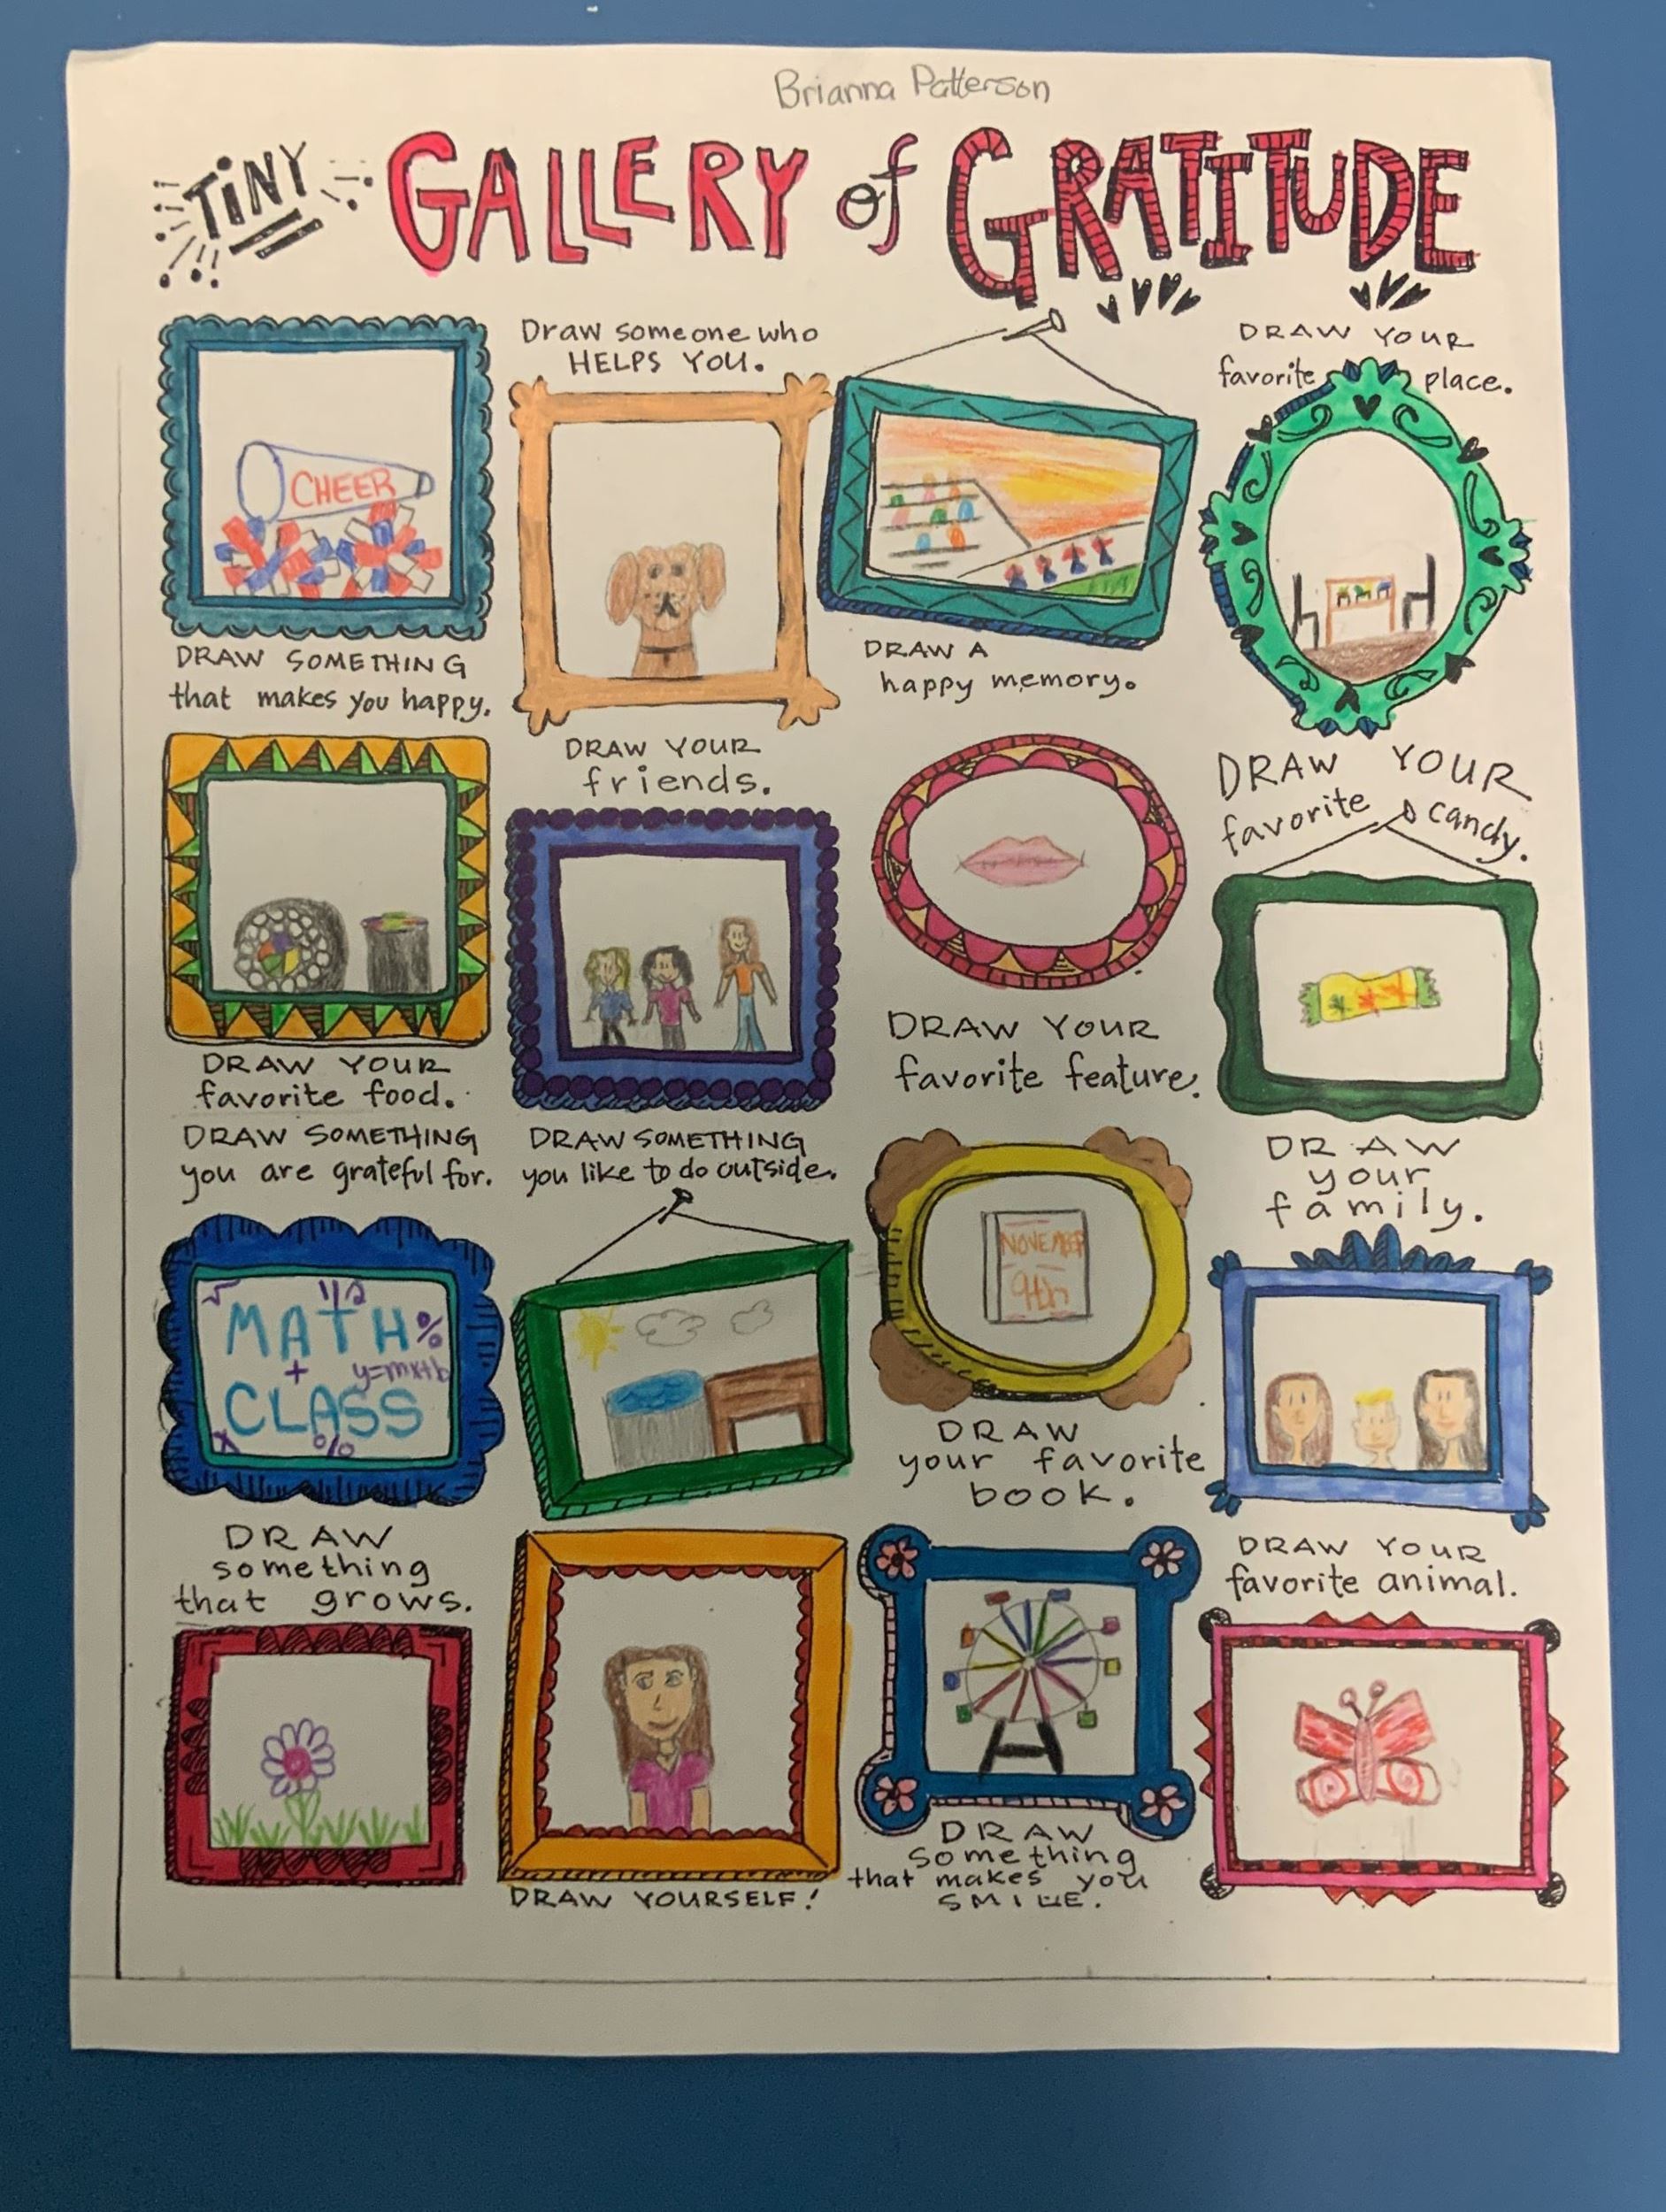 Brianna Patterson
TiNY GALLERY of GRATITUDE
CHEER
DRAW SOMETHING
that makes you happy.
Draw someone who
HELPS YOU.
DRAW A
happy memory.
DRAW YOUR
favorite place.
DRAW YOUR
favorite food.
DRAW YOUR
friends.
DRAW YOUR
favorite feature.
DRAW YOUR
favorite candy.
DRAW SOMETHING
you are grateful for.
√ 1/2
MATH %
+ y=mx+b
CLASS
x %
DRAW SOMETHING
you like to do outside.
NOVEMBER
9th
DRAW
your favorite
book.
DRAW
your
family.
DRAW
something
that grows.
DRAW YOURSELF!
DRAW
something
that makes you
SMILE.
DRAW YOUR
favorite animal.